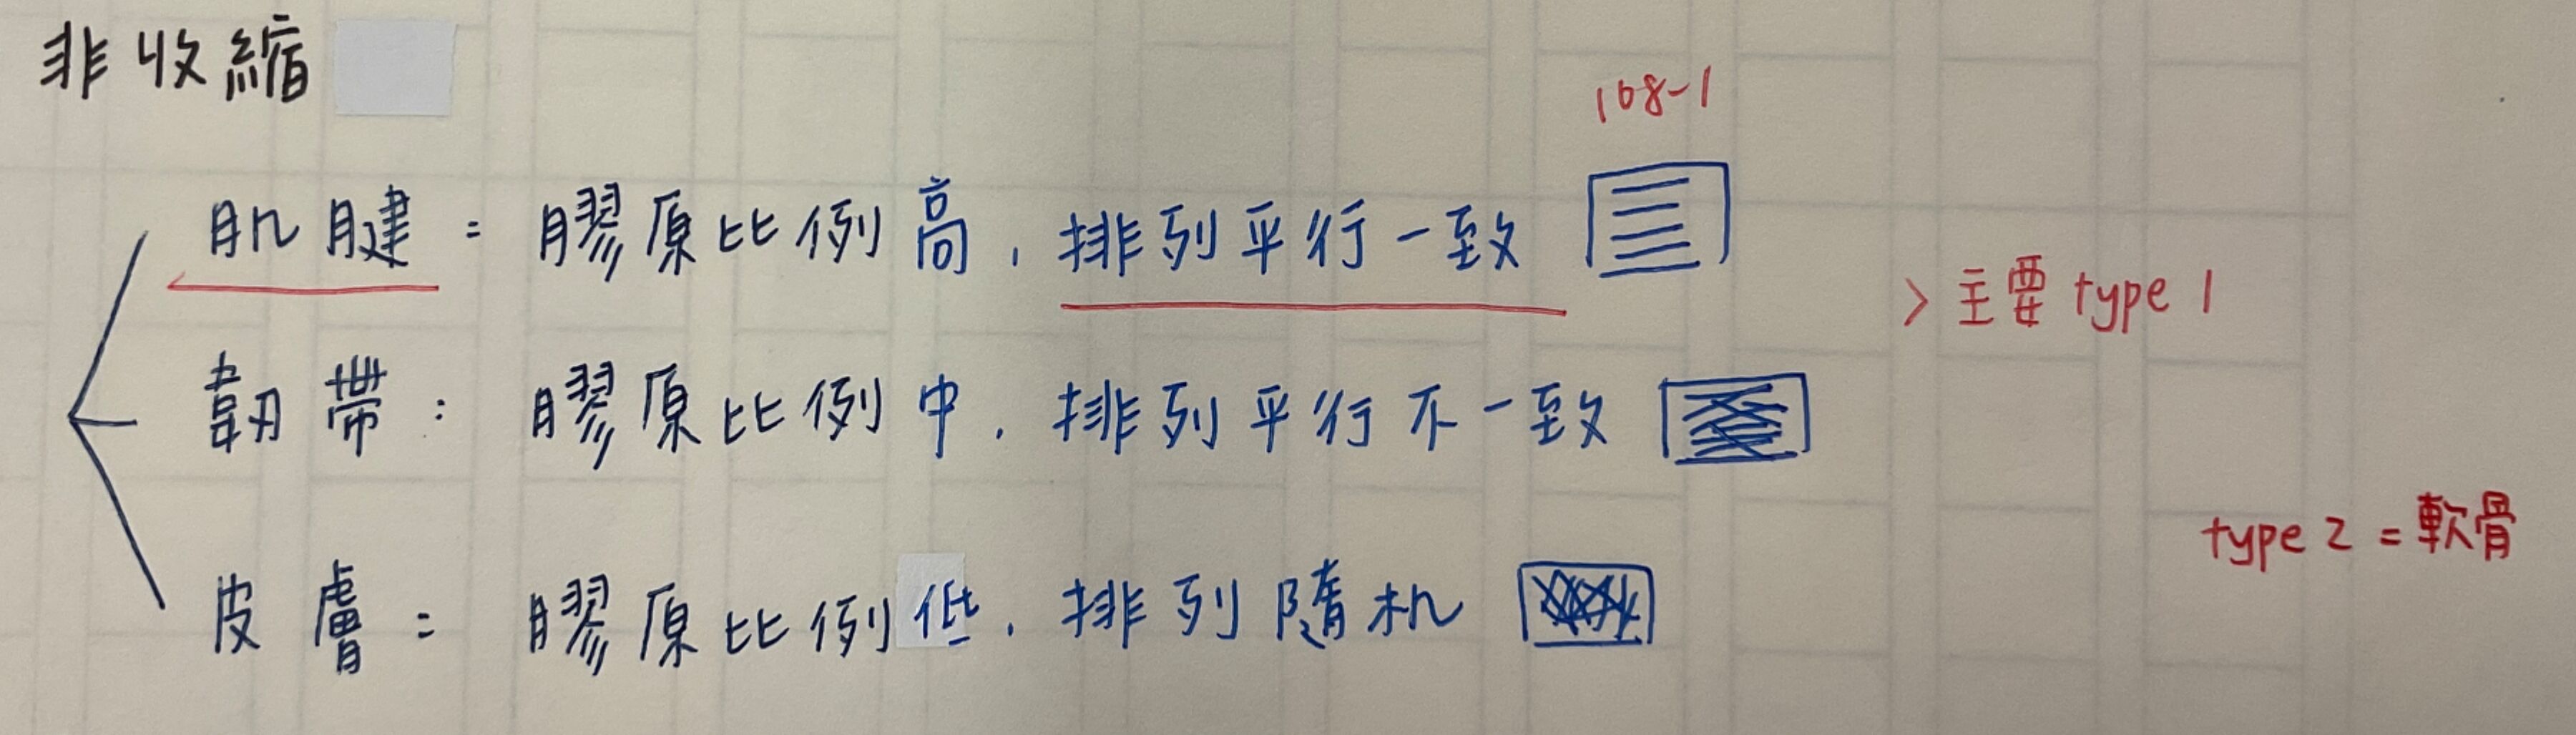 非收縮
108-1
肌腱 = 膠原比例高，排列平行一致
> 主要 type 1
韌帶：膠原比例中，排列平行不一致
type 2 = 軟骨
皮膚：膠原比例低，排列隨机